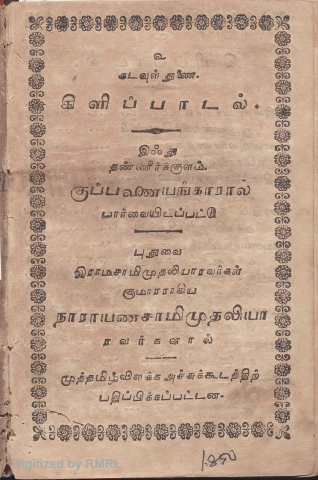 உ
கடவுள் துணை.
கிளிப்பாடல்.
இஃது
தண்ணீர்க்குளம்,
குப்பணையங்காரால்
பார்வையிடப்பட்டு
புதுவை
இராமசாமிமுதலியாரவர்கள்
குமாரராகிய
நாராயணசாமிமுதலியா
ரவர்களால்
முத்தமிழ்விளக்க அச்சுக்கூடத்திற்
பதிப்பிக்கப்பட்டன.
Digitized by RMRL